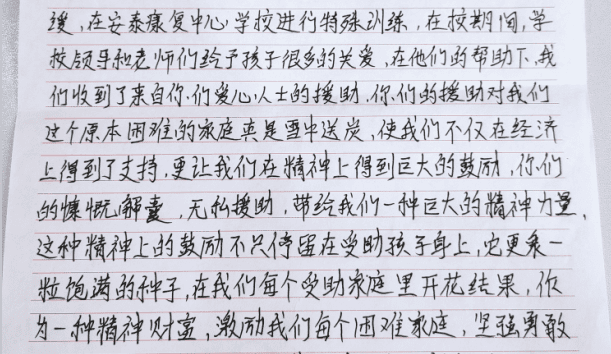 缓，在安泰康复中心学校进行特殊训练，在校期间，学
校领导和老师们给予孩子很多的关爱，在他们的帮助下，我
们收到了来自你们爱心人士的援助，你们的援助对我们
这个原本困难的家庭真是雪中送炭，使我们不仅在经济
上得到了支持，更让我们在精神上得到巨大的鼓励，你们
的慷慨解囊，无私援助，带给我们一种巨大的精神力量，
这种精神上的鼓励不只停留在受助孩子身上，它更象一
粒饱满的种子，在我们每个受助家庭里开花结果，作
为一种精神财富，激励我们每个困难家庭，坚强勇敢